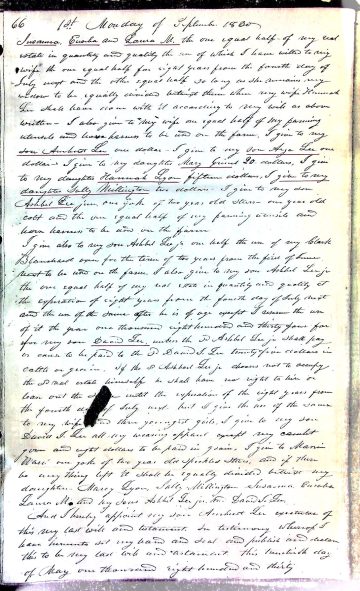 66 1st Monday of September 1830
Susanna, Eunba and Laura M. the one equal half of my real
estate in quantity and quality the use of which I have willed to my
wife the one equal half for eight years from the fourth day of
July next and the other equal half so long as she remains my
widow to be equally divided between them when my wife Hannah
Lee shall have done with it according to my will as above
written - I also give to my wife one equal half of my farming
utensils and horse harness to be used on the farm, I give to my
son Amherst Lee one dollar - I give to my son Asa Lee one
dollar - I give to my daughter Mary 20 dollars, I give
to my daughter Hannah Lyon fifteen dollars, I give to my
daughter Sally Millington two dollars - I give to my son
Ashbel Lee jun. one yok of two year old steers one year old
colt and the one equal half of my farming utensils and
horse harness to be used on the farm
I give also to my son Ashbel Lee jr one half the use of my Clark
Blanchard over for the term of ten years from the first of June
next to be used on the farm I also give to my son Ashbel Lee jr
the one equal half of my real estate in quantity and quality at
the expiration of eight years from the fourth day of July next
and the use of the same after he is of age except I reserve the use
of it the year one thousand eight hundred and thirty four for
for my son David Lee, unless the sd Ashbel Lee jr shall pay
or cause to be paid to the sd David I. Lee twenty five dollars in
cattle or grain. if the sd Ashbel Lee jr chooses not to occupy
the sd real estate himself he shall have no right to hire or
loan out the until the expiration of the eight years from
the fourth day of July next but I give the use of the same
to my wife and three youngest girls. I give to my son
David I. Lee all my wearing apparel except my
gown and eight dollars to be paid in grain. I give to Maria
Ware one yok of two year old speckled steers, and if there
be any thing left it shall be equally divided betwixt my
daughters Mary, Lyon, Sally Millington Susanna Eunba
Laura M. and my sons Ashbel Lee jr. & David I. Lee.
And I hereby appoint my son Amherst Lee executor of
this my last will and testament. In testimony whereof I
have hereunto set my hand and seal and publish and declare
this to be my last will and testament this twentieth day
of May one thousand eight hundred and thirty